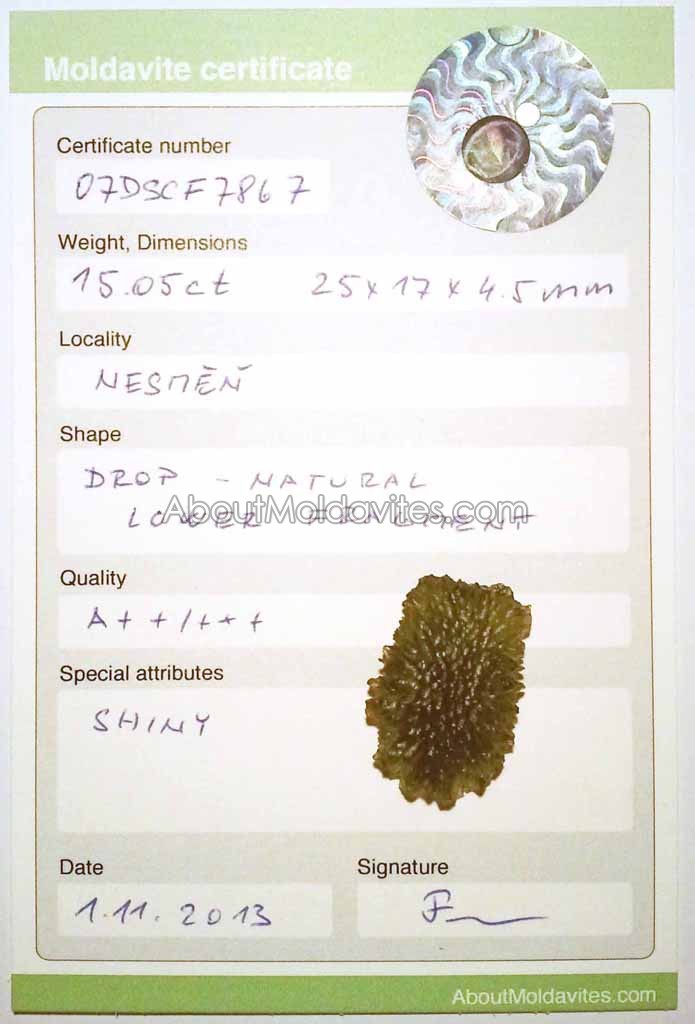 Moldavite certificate
Certificate number
07DSCF7867
Weight, Dimensions
15.05ct 25x17x4.5mm
Locality
NESMĚŇ
Shape
DROP - NATURAL
AboutMoldavites.com
LOWER FRAGMENT
Quality
A++/+++
Special attributes
SHINY
Date
Signature
1.11.2013
AboutMoldavites.com